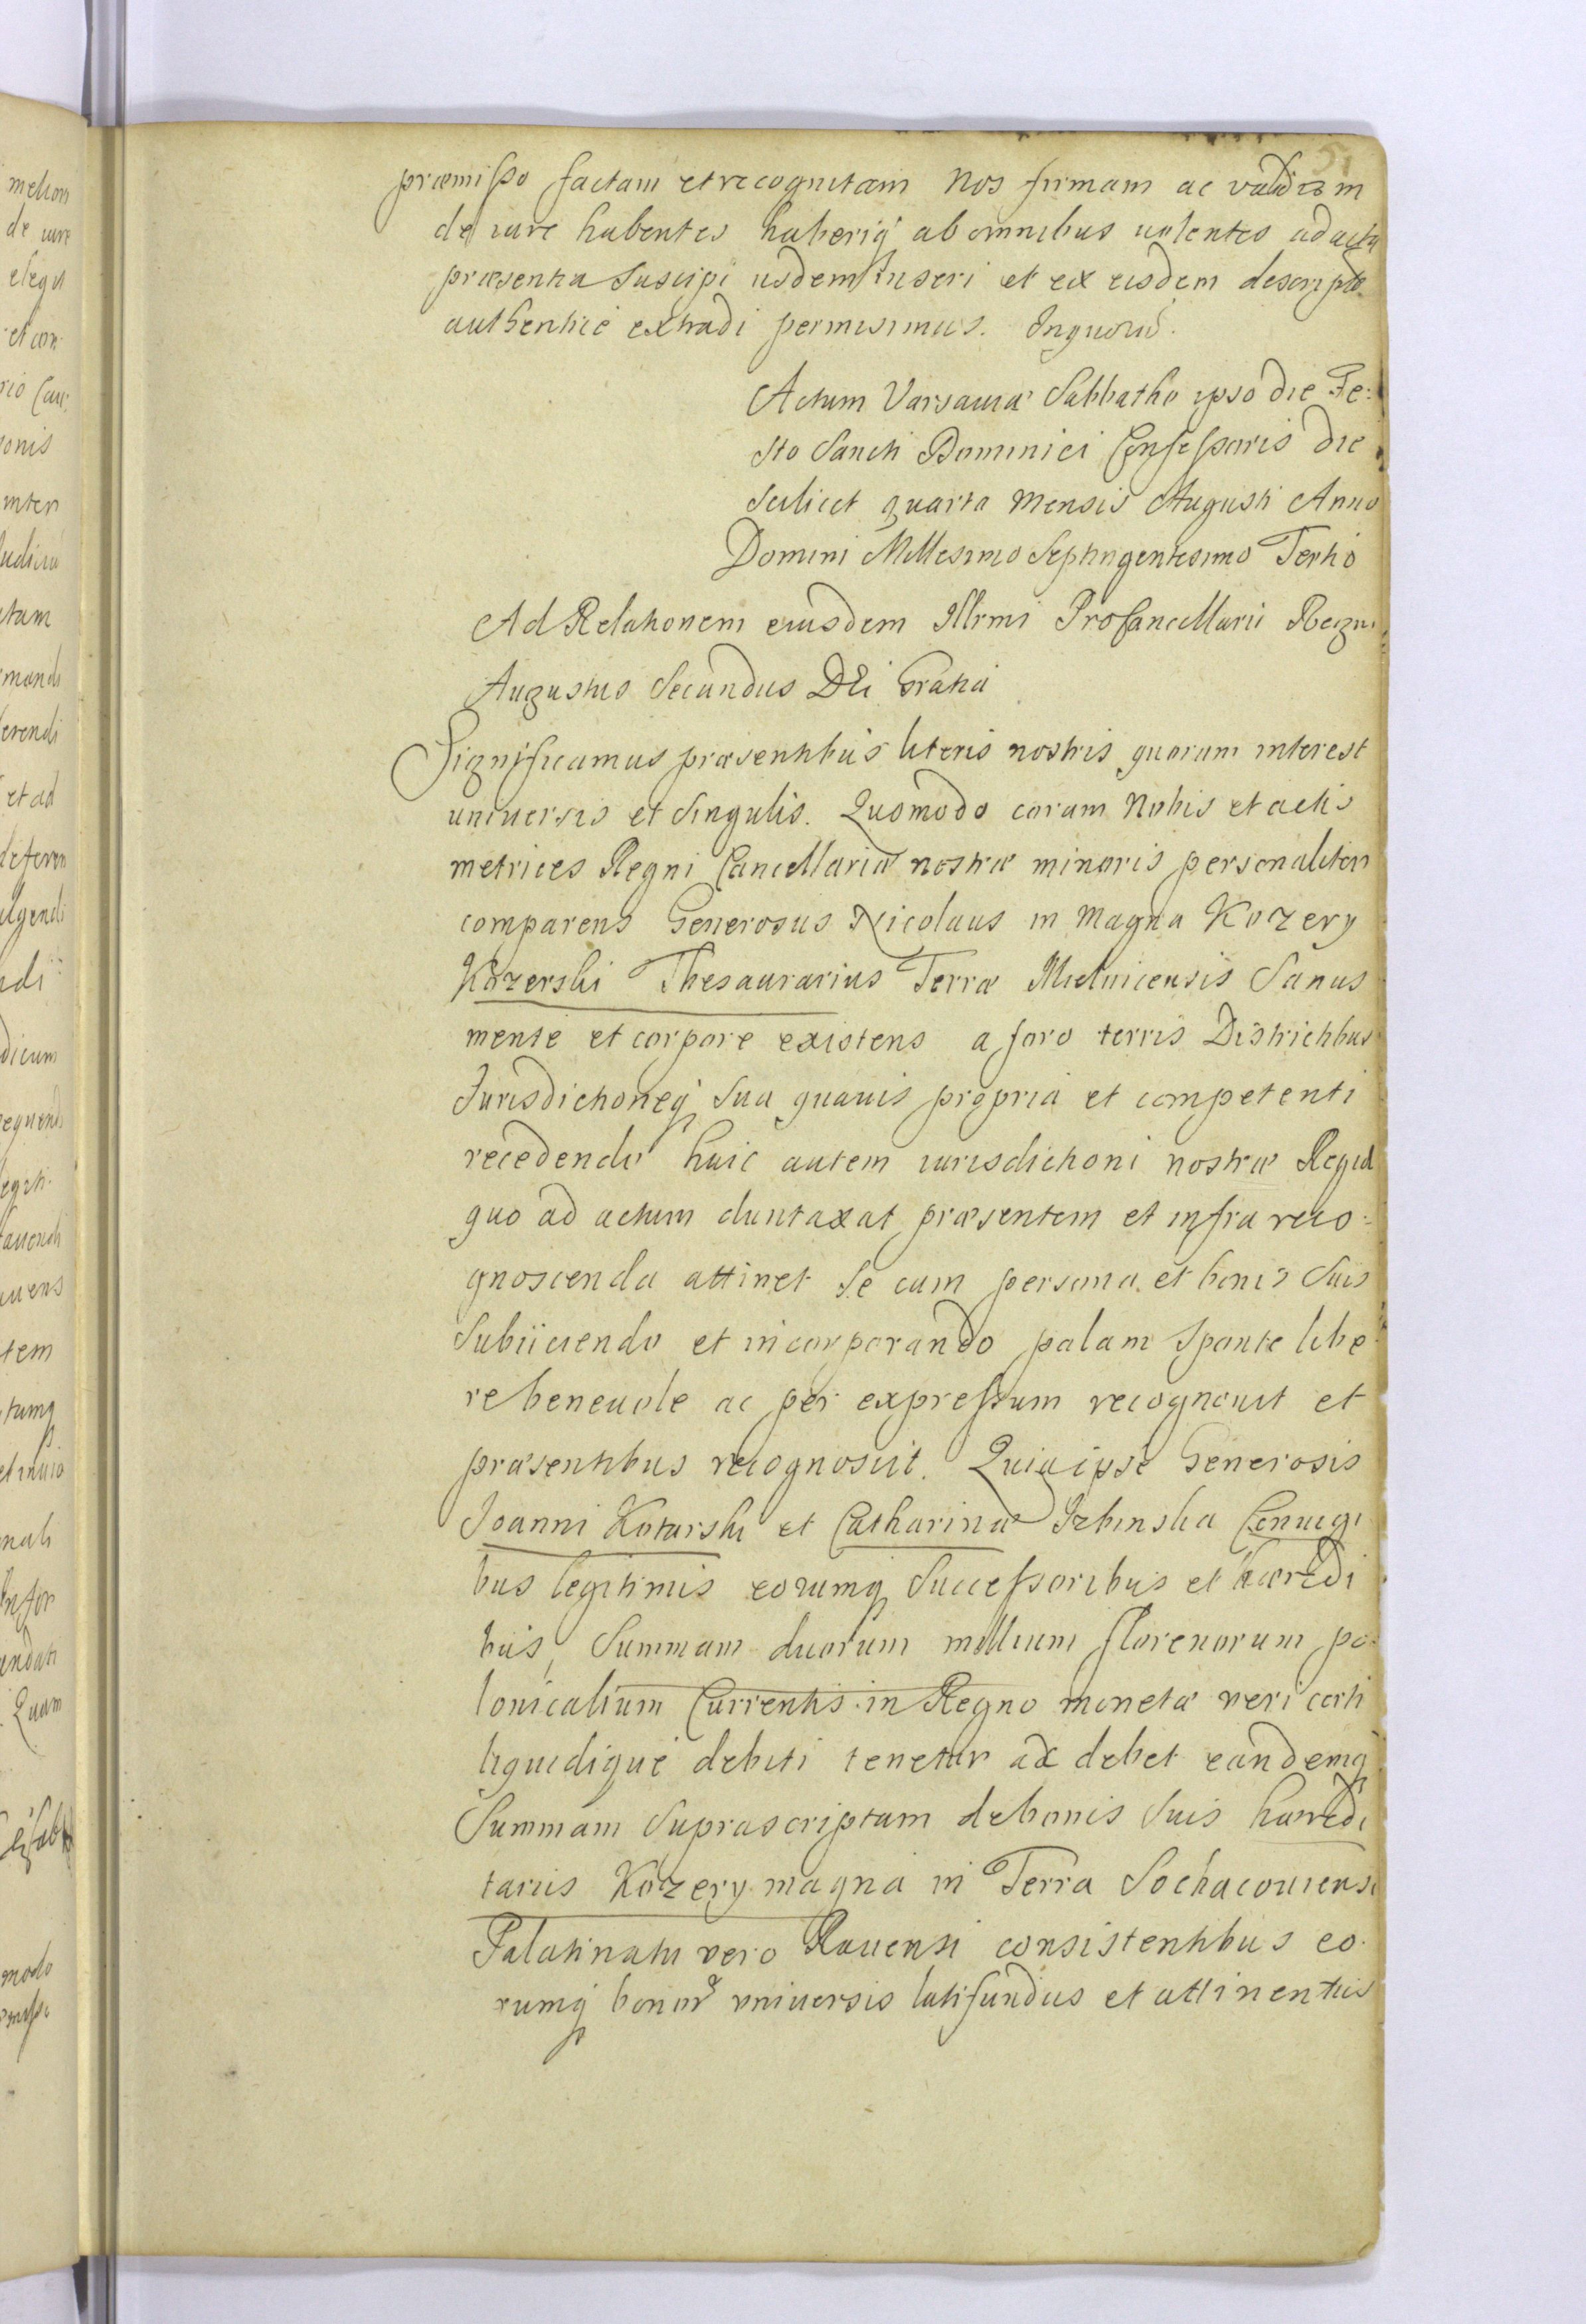 præmisso factam et recognitam Nos firmam ac validam
de iure habentes haberiq' ab omnibus uolentes ad acta
præsentia Suscipi iisdem inseri et ex eisdem descripto
authentice extradi permisimus. In quorũ.
Actum Varsauiæ Sabbatho ipso die Fe:
sto Sancti Dominici Confessoris die
Scilicet quarta Mensis Augusti Anno
Domini Millesimo Septingentesimo Tertio
Ad Relationem eiusdem Illrmi ProCancellarii Regni
Augustus Secundus DEi Gratia
Significamus præsentibus literis nostris quorum interest
uniuersis et Singulis. Quomodo coram Nobis et actis
metrices Regni Cancellariæ nostræ minoris personaliter
comparens Generosus Nicolaus in Magna Kozery
Kozerski Thesaurarius Terræ Mielnicensis Sanus
mente et corpore existens a foro terris Districtibus
Jurisdictioneq' Sua quauis propria et competenti
recedendo huic autem iurisdictioni nostræ Regiæ
quo ad actum duntaxat præsentem et infra reco:
gnoscenda attinet Se cum persona et bonis Suis
Subiiciendo et incorporando palam Sponte libe
re beneuole ac per expressum recognouit et
præsentibus recognoscit. Quia ipse Generosis
Joanni Kotarski et Catharinæ Izbinska Coniugi
bus legitimis eorumq Successoribus et hæredi
bus, Summam duorum millium florenorum po
lonicalium Currentis in Regno monetæ veri certi
liquidique debiti tenetur ac debet eandemq
Summam Suprascriptam de bonis Suis hæredi
tariis Kozery magna in Terra Sochacouiensi
Palatinatu vero Rauensi consistentibus eo
rumq' bonor vniuersis latifundiis et attinentiis